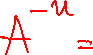 A^{-u} =